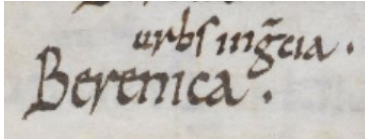 urbs in g̃cia .
Berenica .